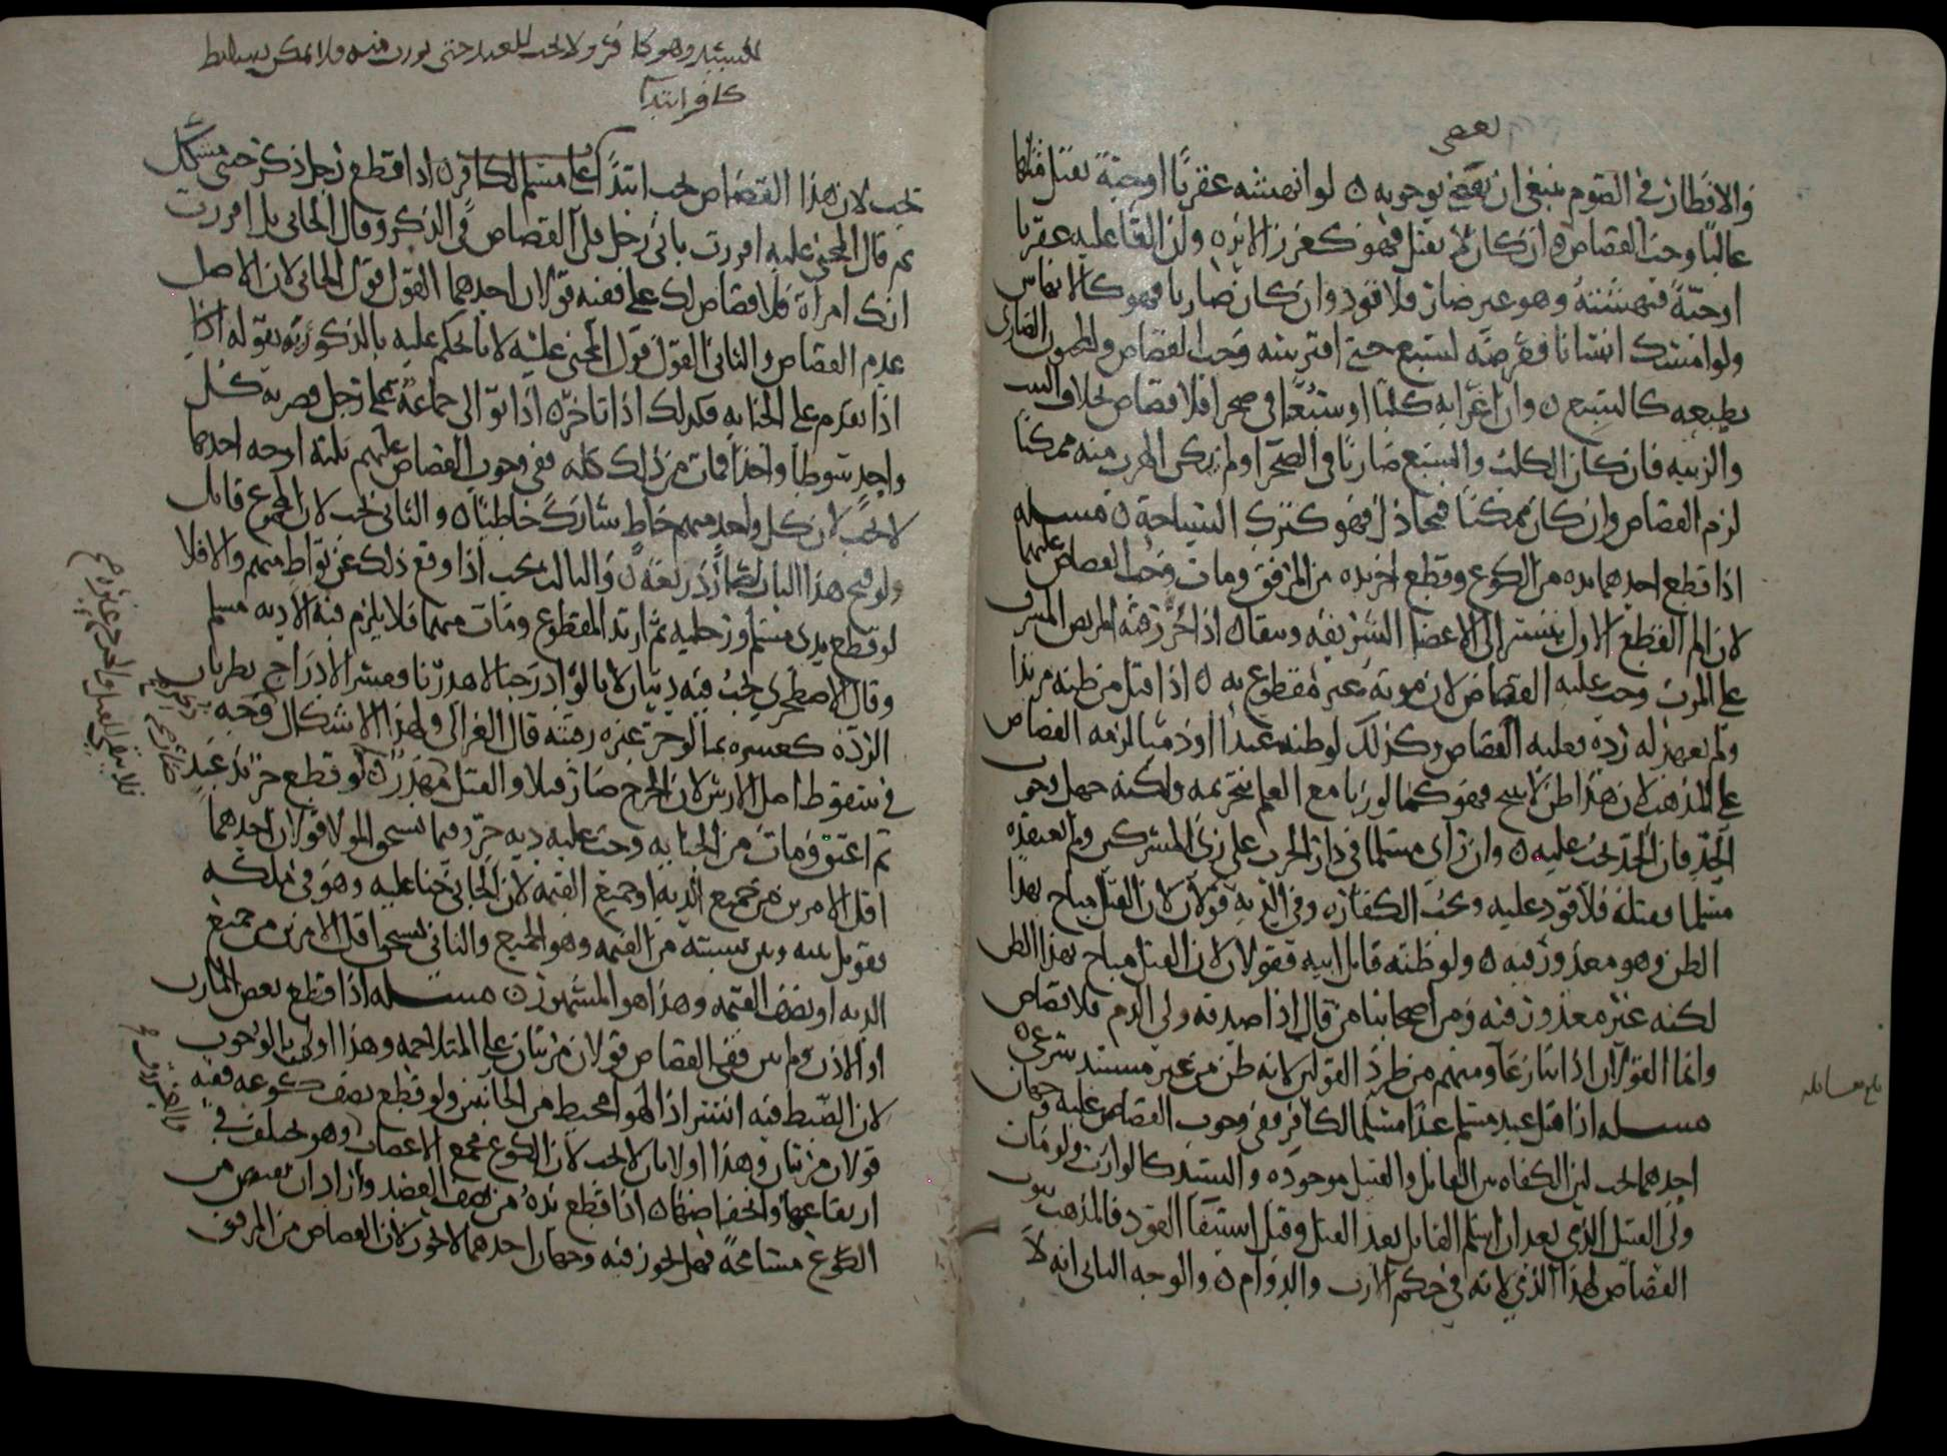 يقضى
والافطار في الصوم ينبغي ان يقضي بوجوبه ٥ لو انهشه عقربًا او حيةً يقتل مثلها
غالبًا وجب القصاص ٥ ان كان لا يقتل فهو كغرز الابرة ٥ ولو القا عليه عقربا
او حيّةً فنهشته وهو غير ضار فلا قود وان كان ضاريا فهو كالانهاش
ولو امسك انسانا فعرضه لسبع حتى افترسه وجب القصاص والمجنون الضارى
بطبعه كالسبع ٥ وان اغرا به كلبًا او سبعًا في صحرا فلا قصاص بخلاف البيت
والزبيه فان كان الكلب والسبع ضاريًا في الصحرا ولم يكن الهرب منه ممكنًا
لزم القصاص وان كان ممكنًا فتخاذل فهو كترك السباحة ٥ مسله
اذا قطع احدهما يده من الكوع وقطع اخر يده من المرفق ومات وجب القصاص عليهما
لان الم القطع الاول ينتشر الى الاعضا الشريفه وبقاه اذا حز رقبة المريض المشرف
على الموت وجب عليه القصاص لان موته غير مقطوع به ٥ اذا قتل من ظنه مرتدا
ولم يعهد له رده فعليه القصاص وكذلك لو ظنه عبدا او ذميا لزمه القصاص
على المذهب لان هذا ظن لا يبيح فهو كما لو زنا مع العلم بتحريمه ولكنه جهل وجوب
الحد فان الحد يجب عليه ٥ وان راى مسلما في دار الحرب على زي المشركين ولم يعتقده
مسلما فقتله فلا قود عليه وتجب الكفارة وفي الدية قولان لان القتل مباح بهذا
الظن وهو معذور فيه ٥ ولو ظنه قاتل ابيه فقولان لان القتل مباح بهذا الظن
لكنه غير معذور فيه ومن اصحابنا من قال اذا صدقه ولي الدم فلا قصاص
وانما القولان اذا تنازعا ومنهم من طرد القولين لانه ظن من غير مستند شرعي ٥
مسله اذا قتل عبد مسلم عبدًا مسلما لكافر ففي وجوب القصاص عليه وجهان
احدهما يجب لان الكفاه بين القاتل والقتيل موجوده والسيد كالوارث ولو مات
ولي القتيل الذي بعد ان اسلم القاتل بعد القتل وقبل استيفا القود فالمذهب ثبوت
القصاص لهذا الذي لانه في حكم الارث والدوام ٥ والوجه الثاني انه لا
للسيد وهو كافر ولا يجب للعبد حتى يورث منه فلا يمكن تسليط
كافر ابتدآ
يجب لان هذا القصاص يجب ابتدآ على مسلم لكافر ٥ اذا قطع رجل ذكر خنثى مشكل
ثم قال المجني عليه اقررت باني رجل فلي القصاص في الذكر وقال الجاني بل اقررت
انك امرأة فلا قصاص لك علي ففيه قولان احدهما القول قول الجاني لان الاصل
عدم القصاص والثاني القول قول المجني عليه لانا نحكم عليه بالذكورة بقوله اذا
اذا تقدم على الجنايه فكذلك اذا تاخر ٥ اذا توالى جماعة على رجل فضربه كل
واحد سوطا واحدًا فمات من ذلك كله ففي وجوب القصاص عليهم ثلثة اوجه احدها
لا يجب لان كل واحد منهم خاطٍ شارك خاطئًا ٥ والثاني يجب لان المجموع قاتل
ولو فتح هذا الباب لصار ذريعة ٥ والثالث يجب اذا وقع ذلك عن تواطٍ منهم والا فلا
لو قطع يدى مسلم ورجليه ثم ارتد المقطوع ومات منهما فلا يلزم فيه الا ديه مسلم
وقال الاصطخري يجب فيه ديتان لانا لو ادرجنا لاهدرنا فعسر الادراج بطريان
الردّة كعسره بما لو حز غيره رقبته قال الغزالي ولهذا الاشكال وجه
في سقوط اصل الارش لان الجرح صار قتلا والقتل مهدر ٥ لو قطع حرّ يد عبد
ثم اعتق ومات من الجنايه وجب عليه ديه حرّ وفيما يستحق المولا قولان احدهما
اقل الامرين من جميع الديه او جميع القيمه لان الجاني جنا عليه وهو في ملكه
من القيمه وهو الجميع والثاني يستحق اقل الامرين من جميع
الديه او نصف القيمه وهذا هو المشهور ٥ مسله اذا قطع بعض المارن
او الاذن ولم يبن ففي القصاص قولان مرتبان على المتلاحمه وهذا اولى بالوجوب
لان الضبط فيه ايسر اذ الهوا محيط من الجانبين ولو قطع نصف كوعه ففيه
قولان مرتبان وهذا اولا بان لا يجب لان الكوع مجمع الاعصاب وهو يختلف في
ارتفاعها وانخفاضها ٥ اذا قطع يده من نصف العضد واراد ان يقتص من
الكوع مسامحةً فهل يجوز فيه وجهان احدهما لا يجوز لان القصاص من المرفق